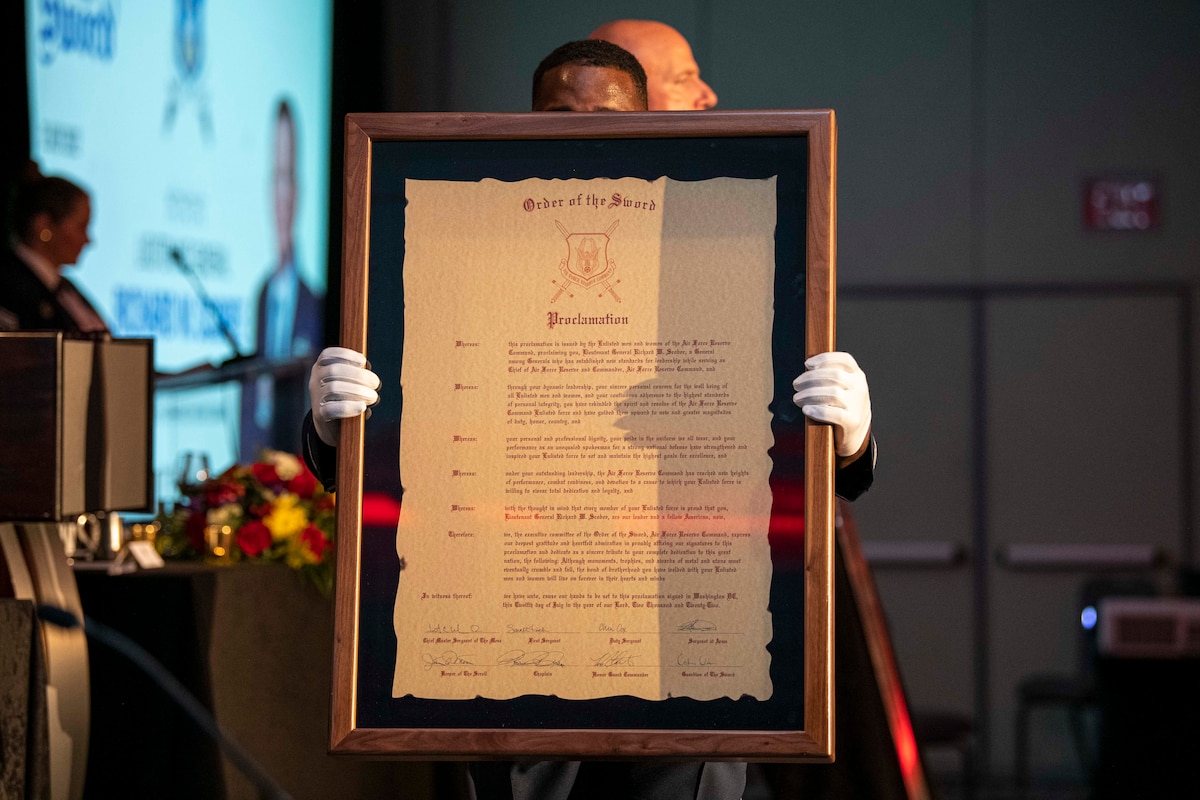 Sword
Order of the Sword
Proclamation
Whereas: this proclamation is issued by the Enlisted men and women of the Air Force Reserve
Command, proclaiming you, Lieutenant General Richard W. Scobee, a General
among Generals who has established new standards for leadership while serving as
Chief of Air Force Reserve and Commander, Air Force Reserve Command, and
Whereas: through your dynamic leadership, your sincere personal concern for the well being of
all Enlisted men and women, and your continuous adherence to the highest standards
of personal integrity, you have rekindled the spirit and resolve of the Air Force Reserve
Command Enlisted force and have guided them upward to new and greater magnitudes
of duty, honor, country, and
Whereas: your personal and professional dignity, your pride in the uniform we all wear, and your
performance as an unequaled spokesman for a strong national defense have strengthened and
inspired your Enlisted force to set and maintain the highest goals for excellence, and
Whereas: under your outstanding leadership, the Air Force Reserve Command has reached new heights
of performance, combat readiness, and devotion to a cause to which your Enlisted force is
willing to swear total dedication and loyalty, and
Whereas: with the thought in mind that every member of your Enlisted force is proud that you,
Lieutenant General Richard W. Scobee, are our leader and a fellow American, now,
Therefore: we, the executive committee of the Order of the Sword, Air Force Reserve Command, express
our deepest gratitude and heartfelt admiration in proudly affixing our signatures to this
proclamation and dedicate as a sincere tribute to your complete dedication to this great
nation, the following: Although monuments, trophies, and awards of metal and stone must
eventually crumble and fall, the bond of brotherhood you have welded with your Enlisted
men and women will live on forever in their hearts and minds
In witness thereof: we have unto, cause our hands to be set to this proclamation signed in Washington DC,
this Twelfth day of July in the year of our Lord, Two Thousand and Twenty-Two.
Chief Master Sergeant of The Mess First Sergeant Duty Sergeant Sergeant at Arms
Keeper of The Scroll Chaplain Honor Guard Commander Guardian of The Sword